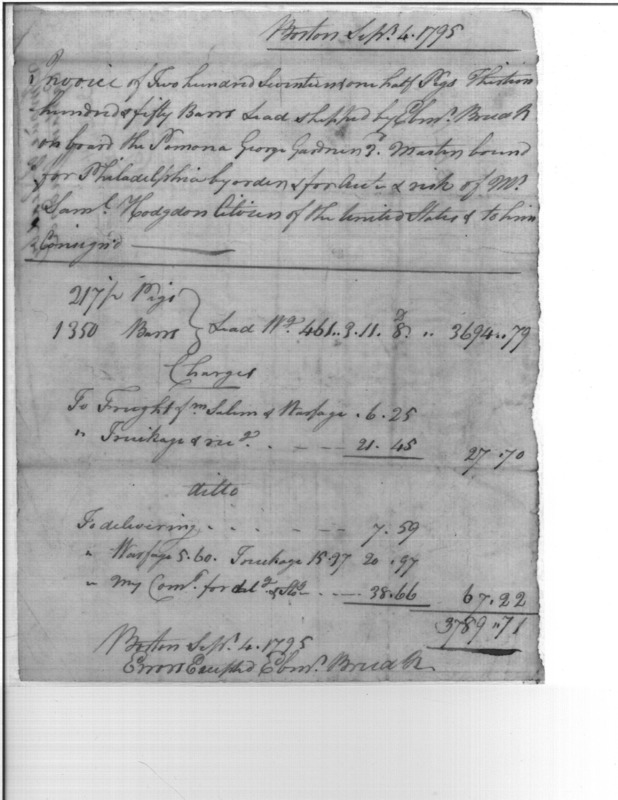 Boston Sepr. 4. 1795
Invoice of Two hundred Seventeen & one half Pigs Thirteen
hundred & fifty Barrs Lead Shipped by Ebenr. Breed
on board the Pomona George Gardner Master bound
for Philadelphia by order & for Acct. & risk of Mr.
Saml. Hodgdon Citizen of the United States & to him
Consign'd
217½ Pigs
1350 Barrs } Lead Wg. 461..3.11. 8 .. 3694..79
Charges
To Freight fm Salem & Warfage . 6.25
" Truckage & 21.45 27.70
ditto
To delivering . . . 7.59
" Warfage 5.60. Truckage 15.37 20.97
" My Comn. for 38.66 67.22
3789..71
Boston Sepr. 4. 1795
Errors Excepted Ebenr. Breed